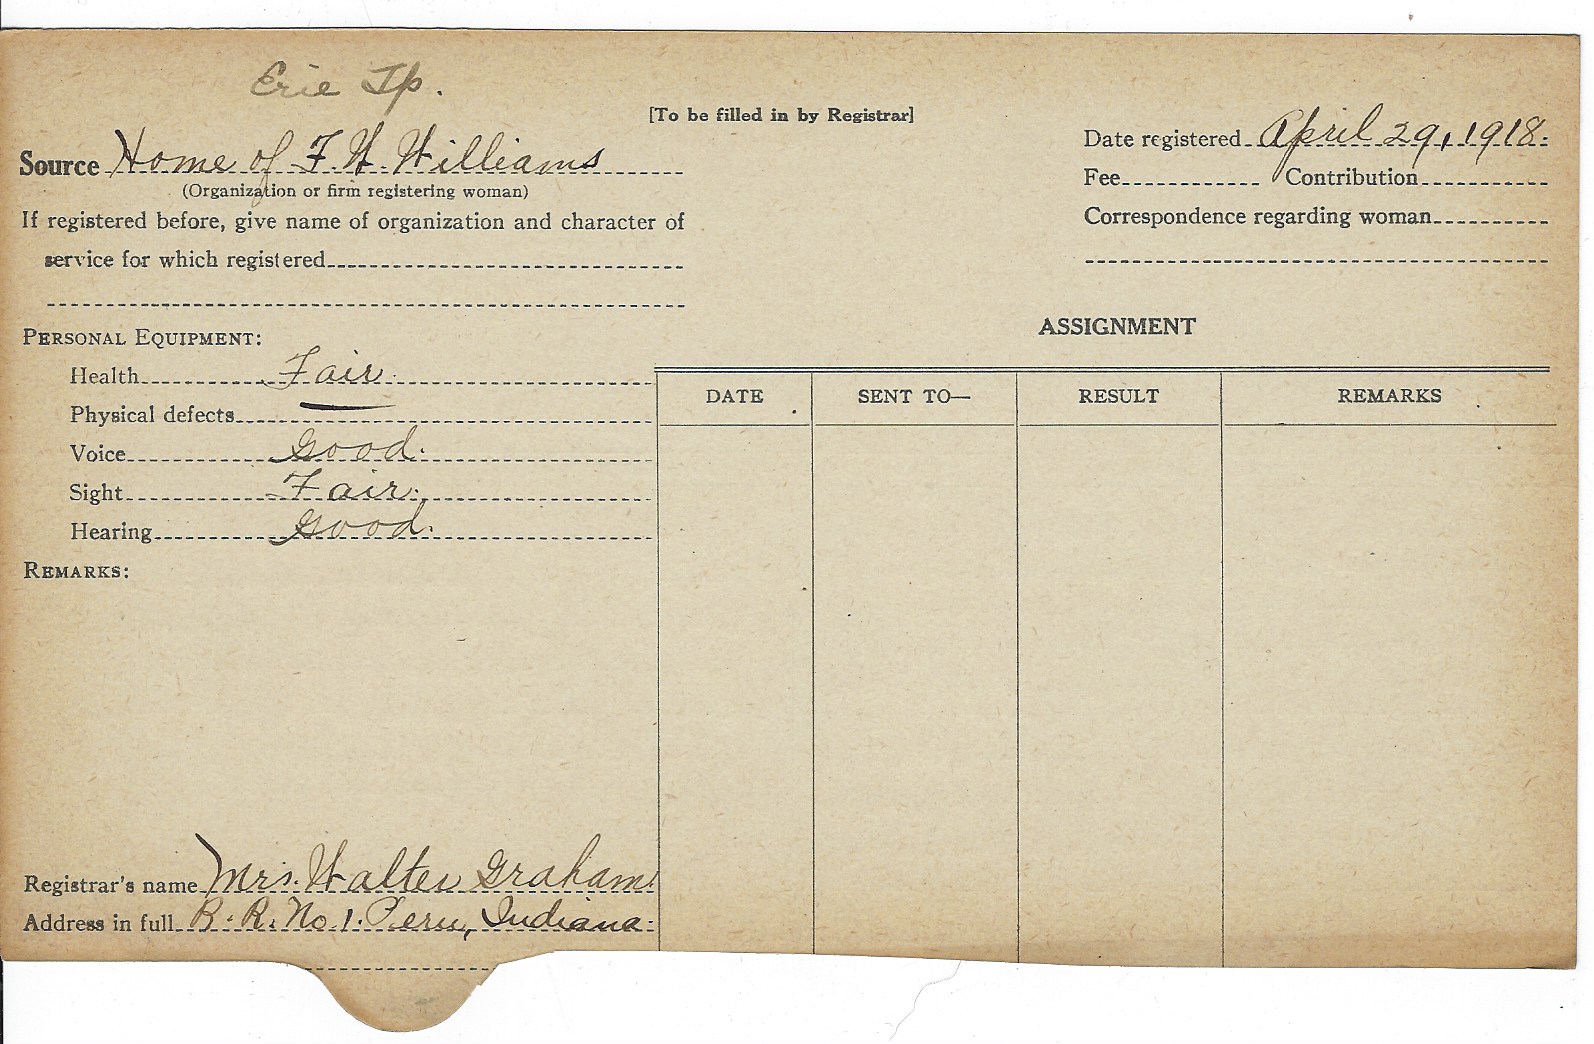 Erie Tp.
[To be filled in by Registrar]
Source Home of F. W. Williams
(Organization or firm registering woman)
If registered before, give name of organization and character of
service for which registered
Date registered April 29, 1918.
Fee Contribution
Correspondence regarding woman
PERSONAL EQUIPMENT:
Health Fair.
Physical defects —
Voice Good.
Sight Fair.
Hearing Good.
REMARKS:
ASSIGNMENT
DATE SENT TO— RESULT REMARKS
Registrar's name Mrs. Walter Graham.
Address in full R. R. No. 1. Peru, Indiana.